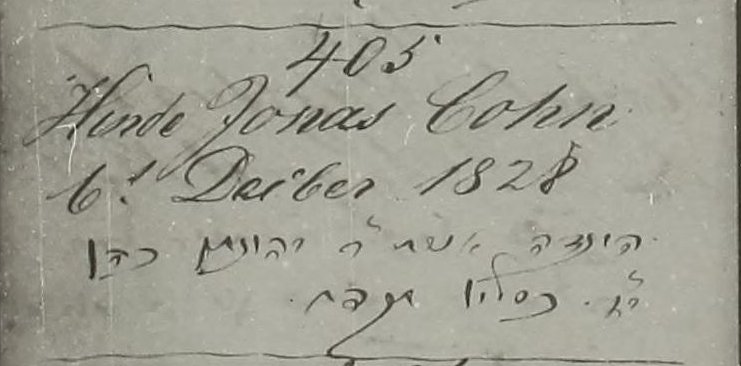 405
Hinde Jonas Cohn
6t Decíber 1828
הינדה אשת ר׳ יהונתן כהן
כסליו תקפט